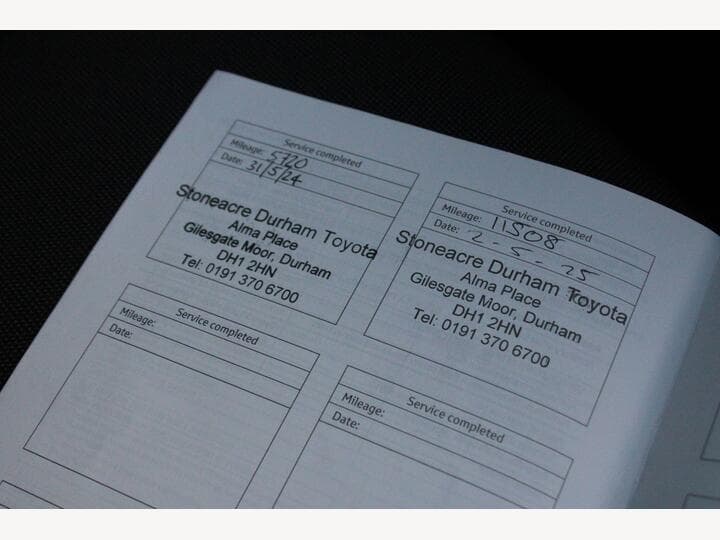 Service completed
Mileage: 5720
Date: 31/5/24
Stoneacre Durham Toyota
Alma Place
Gilesgate Moor, Durham
DH1 2HN
Tel: 0191 370 6700
Service completed
Mileage: 11508
Date: 2-5-25
Stoneacre Durham Toyota
Alma Place
Gilesgate Moor, Durham
DH1 2HN
Tel: 0191 370 6700
Service completed
Mileage:
Date:
Service completed
Mileage:
Date: